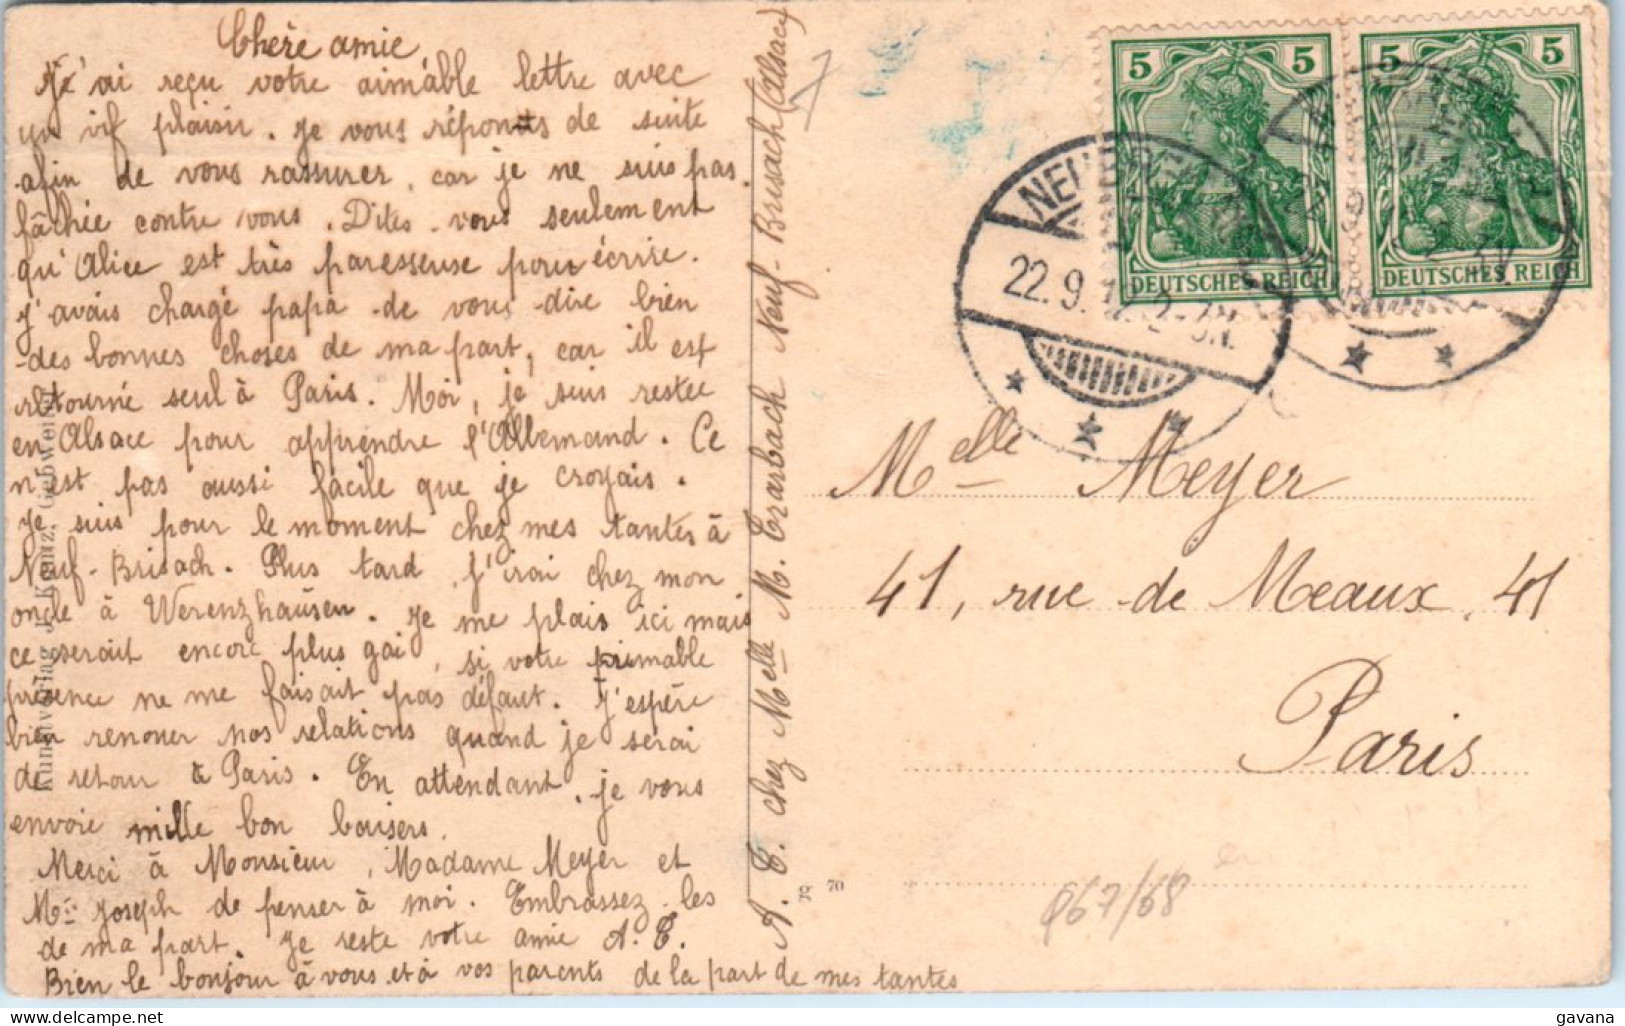 Chère amie
Je'ai reçu votre aimable lettre avec
un vif plaisir. Je vous réponds de suite
afin de vous rassurer, car je ne suis pas
fâchée contre vous. Dites-vous seulement
qu'Alice est très paresseuse pour écrire.
J'avais chargé papa de vous dire bien
des bonnes choses de ma part, car il est
retourné seul à Paris. Moi, je suis restée
en Alsace pour apprendre l'Allemand. Ce
n'est pas aussi facile que je croyais.
Je suis pour le moment chez mes tantes à
Neuf-Brisach. Plus tard j'irai chez mon
oncle à Werenzhausen. Je me plais ici mais
ce serait encore plus gai, si votre aimable
présence ne me faisait pas défaut. J'espère
bien renouer nos relations quand je serai
de retour à Paris. En attendant, je vous
envoie mille bon baisers.
Merci à Monsieur, Madame Meyer et
Mr Joseph de penser à moi. Embrassez-les
de ma part. Je reste votre amie A. T.
Bien le bonjour à vous et à vos parents de la part de mes tantes
A. T. chez Melle M. Trarbach Neuf-Brisach (Alsace)
7
Kunstverlag J. Gebweiler
70
5 5
DEUTSCHES REICH
5 5
DEUTSCHES REICH
22.9.
Melle Meyer
41, rue de Meaux, 41
Paris
967/68
gavana
delcampe.net